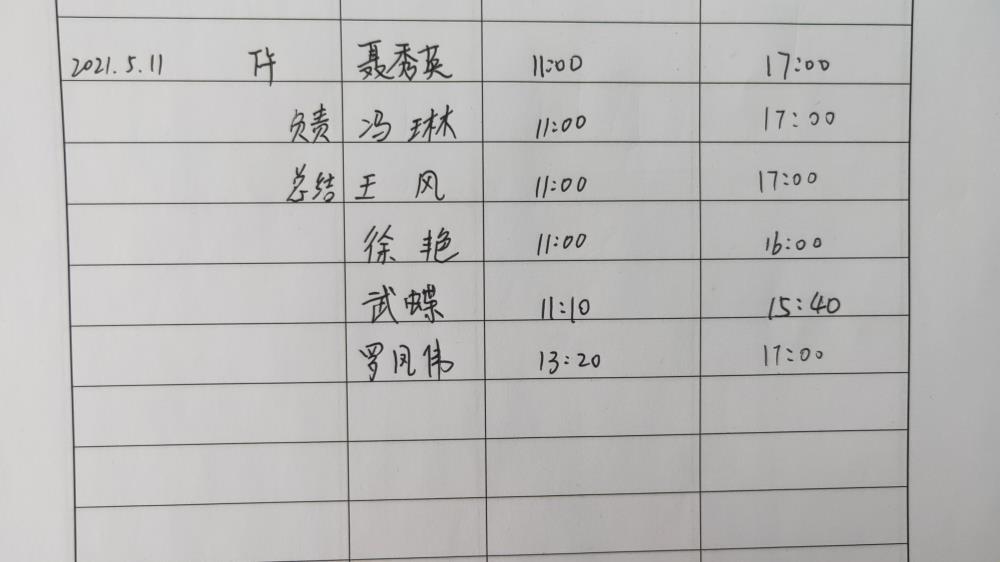 2021.5.11 下午 聂秀英 11:00 17:00
负责 冯琳 11:00 17:00
总结 王风 11:00 17:00
徐艳 11:00 16:00
武蝶 11:10 15:40
罗凤伟 13:20 17:00